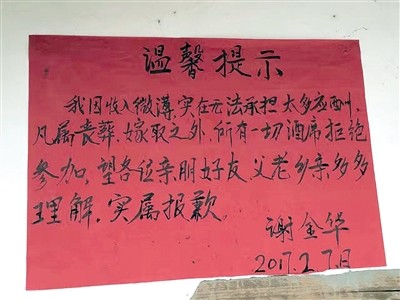 温馨提示
我因收入微薄,实在无法承担太多应酬,
凡属丧葬、嫁取之外,所有一切酒席拒绝
参加,望各位亲朋好友父老乡亲,多多
理解,实属报歉,
谢金华
2017.2.7.日